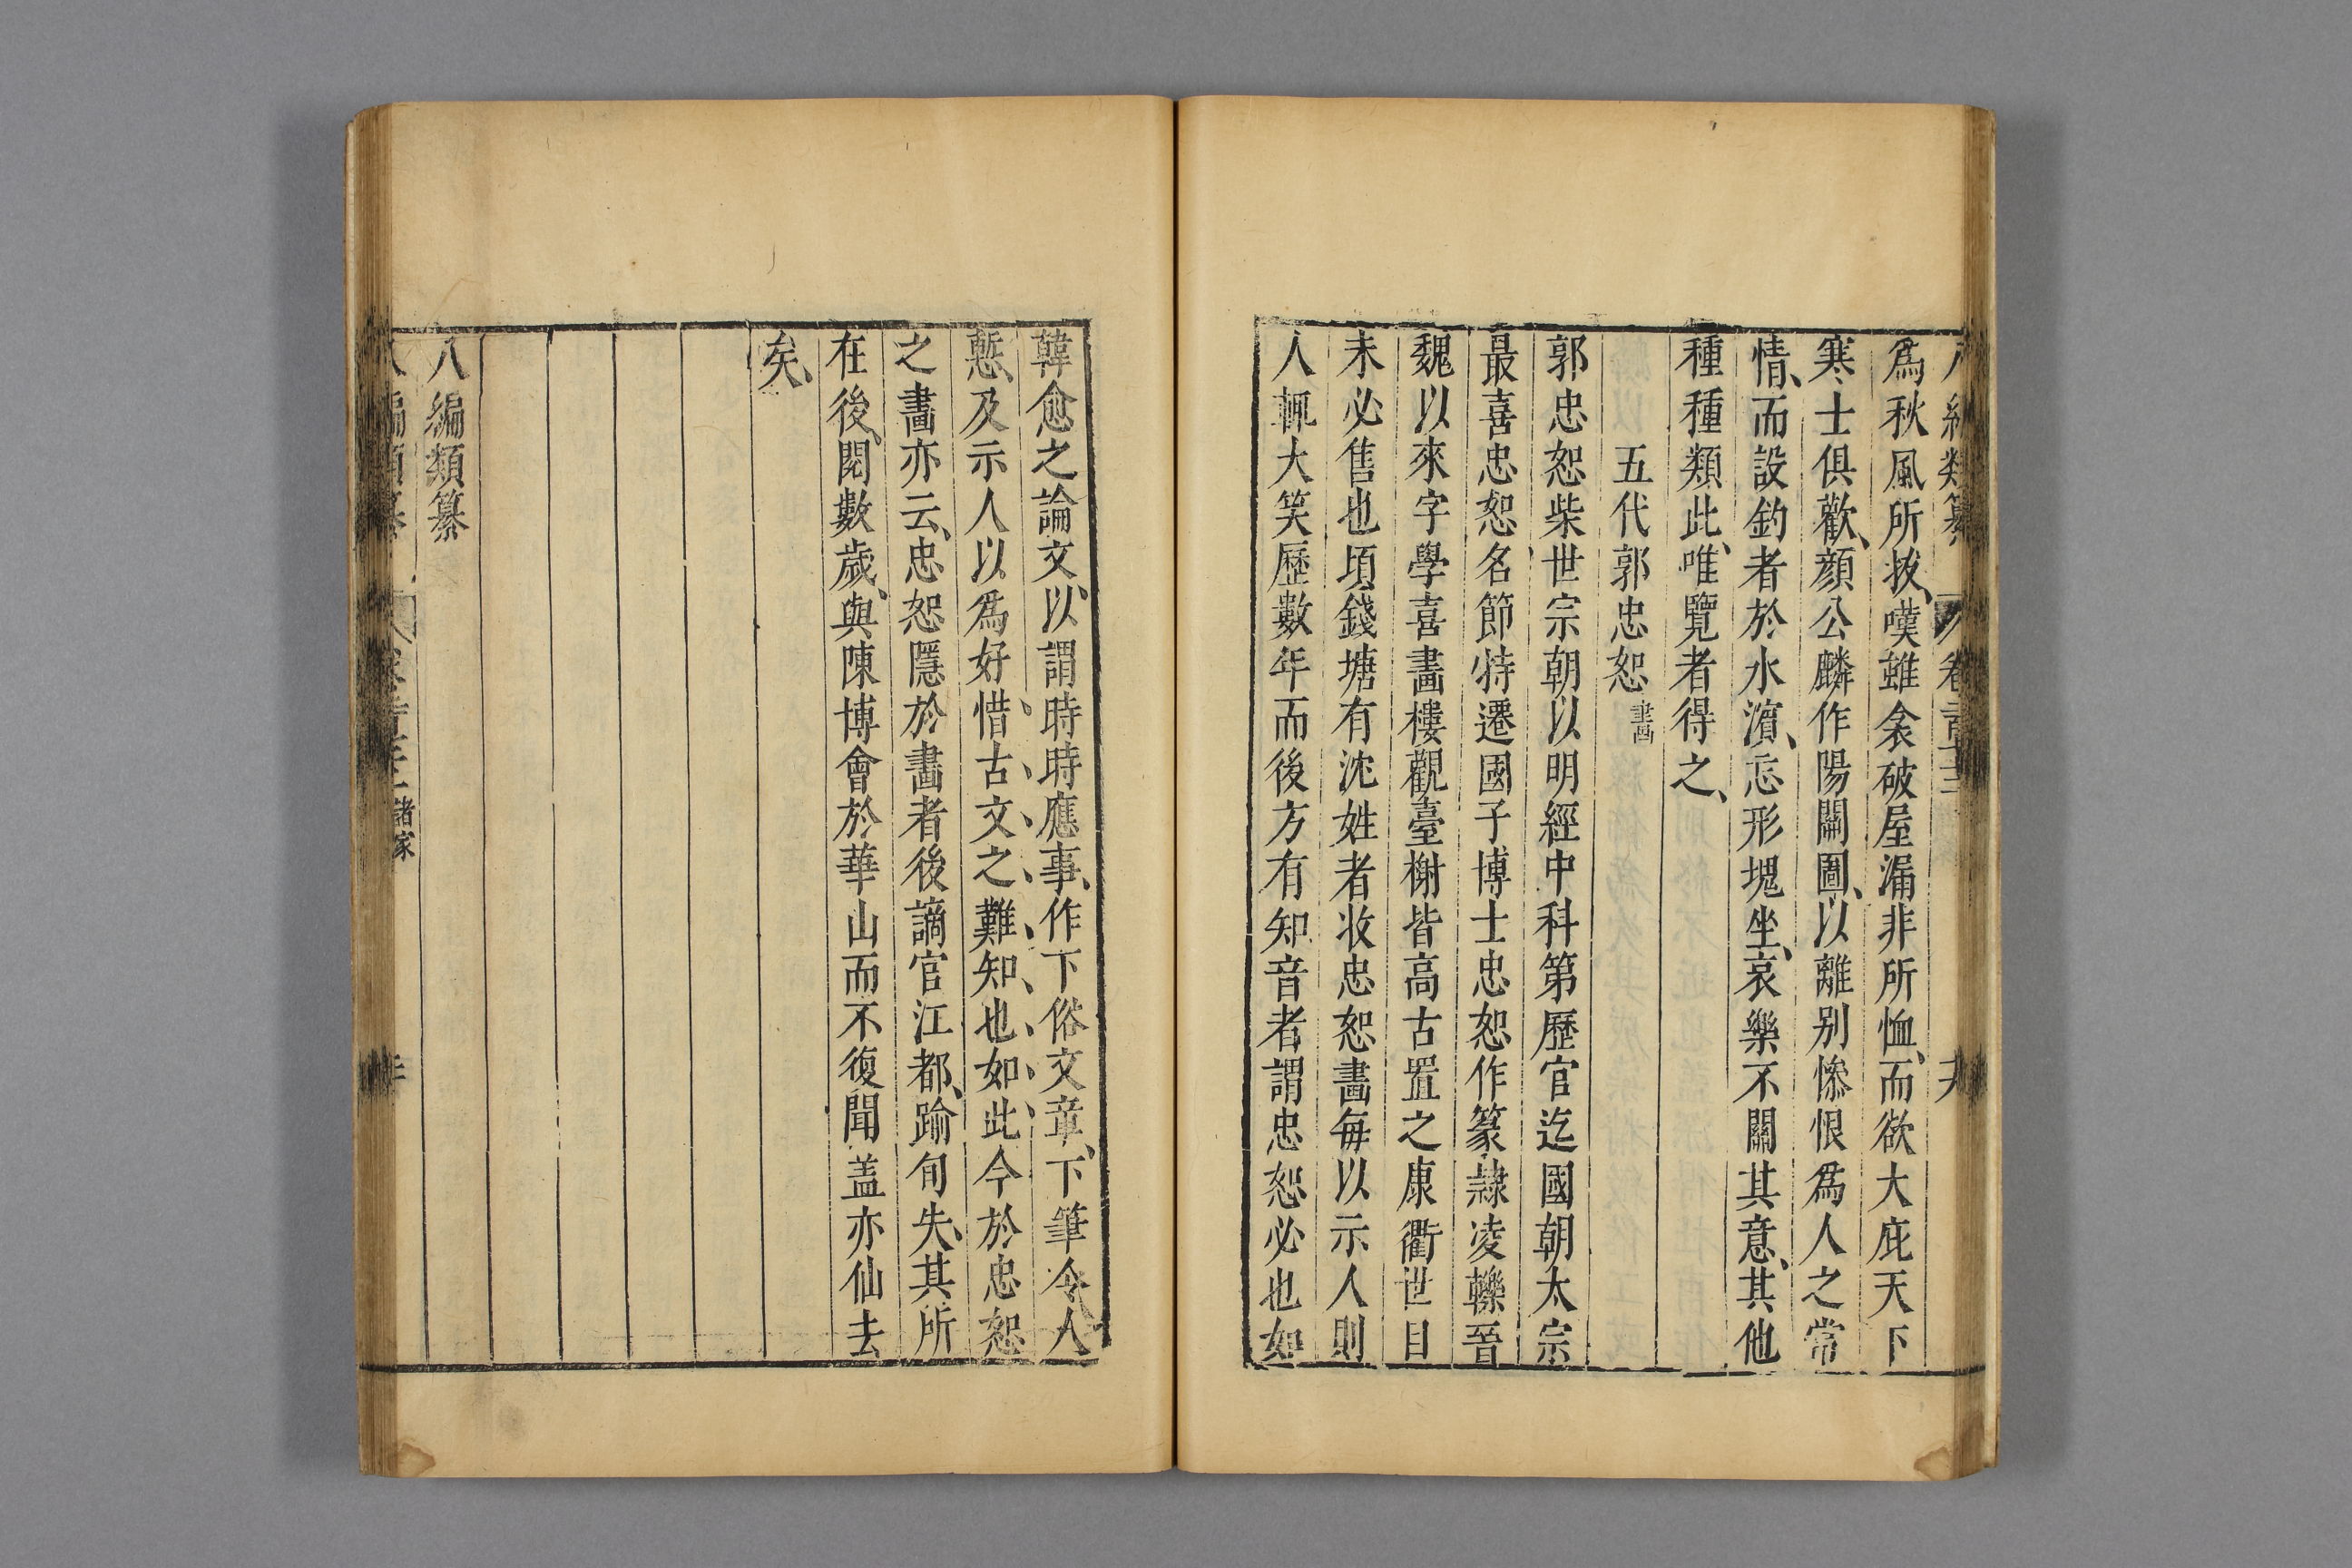 爲秋風所拔、嘆雖衾破屋漏非所恤、而欲大庇天下
寒士俱歡、顔公麟作陽關圖、以離别慘恨爲人之常
情、而設釣者於水濵、忘形塊坐、哀樂不關其意、其他
種種類此、唯覽者得之、
五代郭忠恕書畫
郭忠恕柴世宗朝以明經中科第歷官迄國朝太宗
最喜忠恕名節特遷國子博士忠恕作篆隷凌轢晉
魏以來字學喜畵樓觀臺榭皆高古置之康衢世目
未必售也頃錢塘有沈姓者收忠恕畵每以示人則
人輒大笑歷數年而後方有知音者謂忠恕必也如
韓愈之論文、以謂時時應事、作下俗文章、下筆令人
慙、及示人以爲好惜、古、文、之、難、知、也、如、此、今於忠恕
之畵亦云、忠恕隱於畵者後謫官江都、踰旬失、其所
在後、閱數歲、與陳博會於華山而不復聞盖亦仙去
矣、
八編類纂
諸家